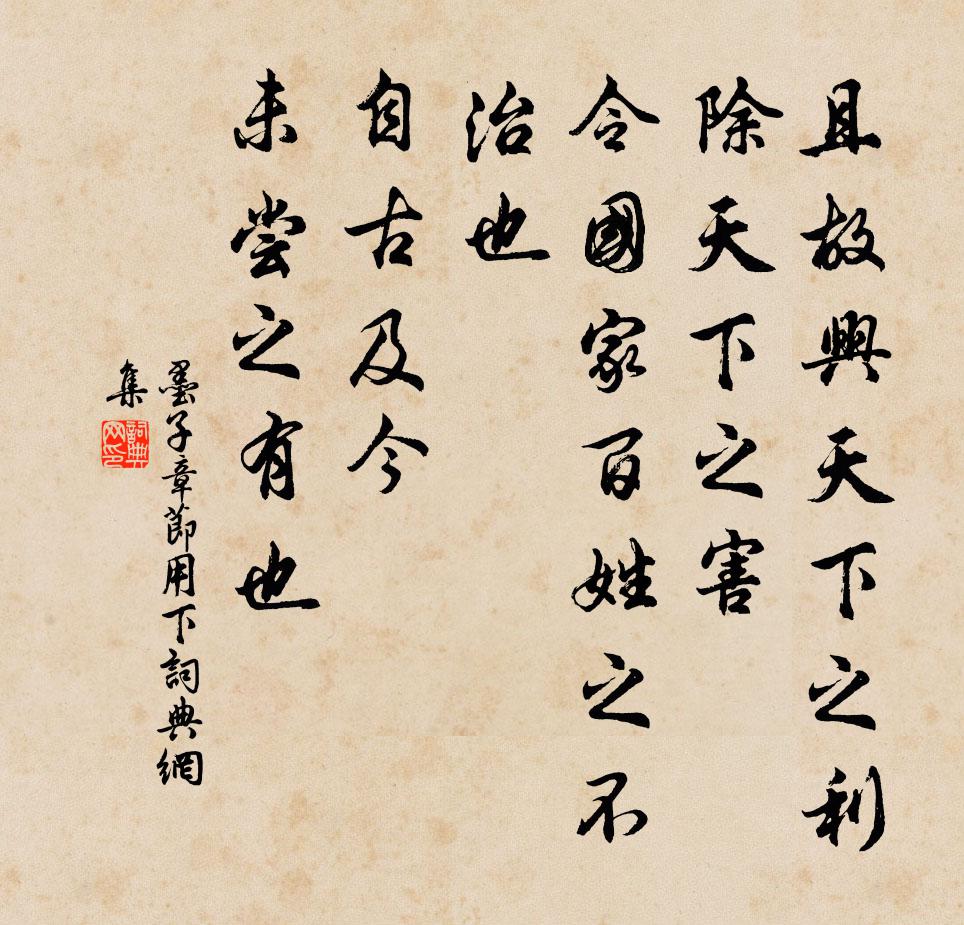 且故興天下之利
除天下之害
令國家百姓之不
治也
自古及今
未嘗之有也
墨子章節用下詞典網
集
詞典網印